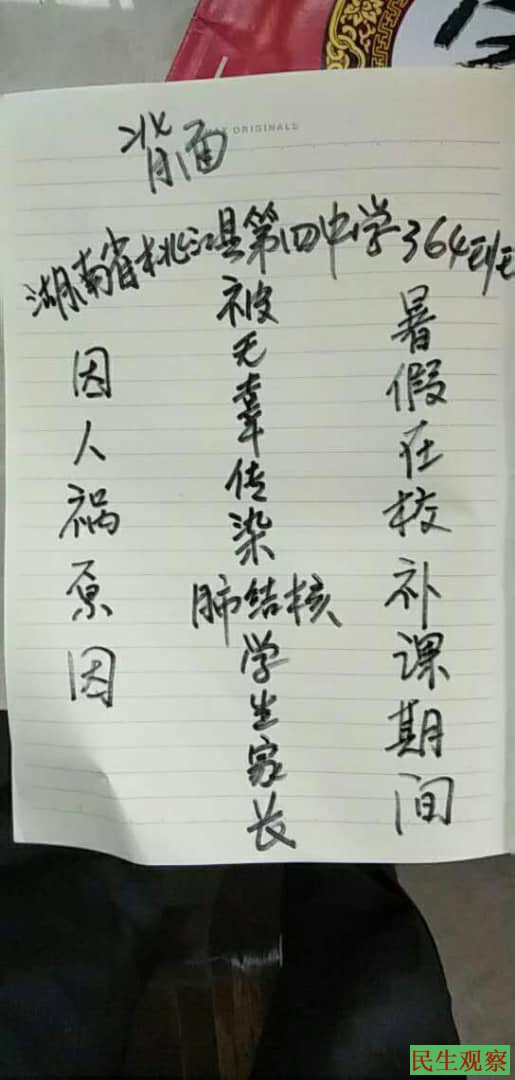 ORIGINALE
背面
湖南省桃江县第四中学364班
暑假在校补课期间
被无辜传染肺结核学生家长
因人祸原因
民生观察